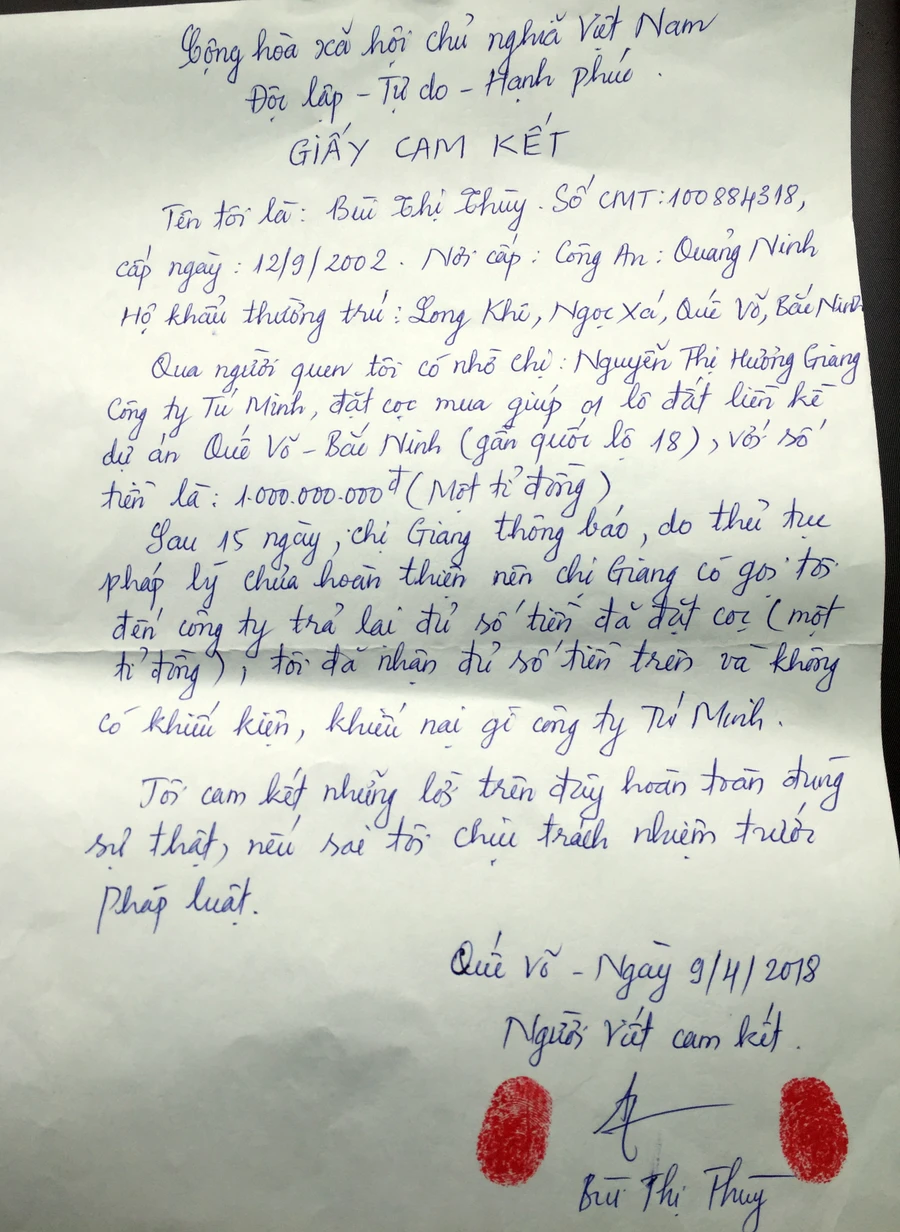 Cộng hòa xã hội chủ nghĩa Việt Nam
Độc lập - Tự do - Hạnh phúc.
GIẤY CAM KẾT
Tên tôi là: Bùi Thị Thùy. Số CMT: 100884318,
cấp ngày: 12/9/2002. Nơi cấp: Công An: Quảng Ninh
Hộ khẩu thường trú: Long Khê, Ngọc Xá, Quế Võ, Bắc Ninh
Qua người quen tôi có nhờ chị: Nguyễn Thị Hưởng Giang
Công ty Tú Minh, đặt cọc mua giúp 01 lô đất liền kề
dự án Quế Võ - Bắc Ninh (gần quốc lộ 18), với số
tiền là: 1.000.000.000đ (Một tỉ đồng)
Sau 15 ngày, chị Giang thông báo, do thủ tục
pháp lý chưa hoàn thiện nên chị Giang có gọi tôi
đến công ty trả lại đủ số tiền đã đặt cọc (một
tỉ đồng), tôi đã nhận đủ số tiền trên và không
có khiếu kiện, khiếu nại gì công ty Tú Minh.
Tôi cam kết những lời trên đây hoàn toàn đúng
sự thật, nếu sai tôi chịu trách nhiệm trước
Pháp luật.
Quế Võ - Ngày 9/4/2018
Người viết cam kết.
Bùi Thị Thùy